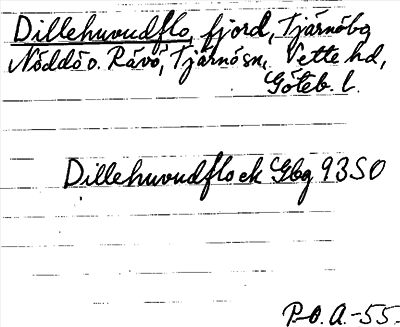 Dillehuvudflo, fjord, Tjärnöbg
Nöddö o. Rävö, Tjärnö sn, Vette hd,
Göteb. l.
Dillehuvudflo ek Gbg 93 SO
P.O.A.-55.